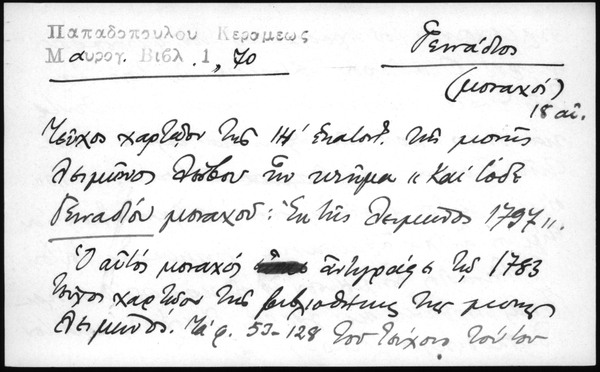 Παπαδοπουλου Κεραμεως
Μαυρογ. Βιβλ. 1, 70
Γεννάδιος
(μοναχός)
18 αἰ.
Τεῦχος χαρτῷον τῆς ΙΗ' ἑκατοντ. τῆς μονῆς
Λειμῶνος Λέσβου ἦν κτῆμα "Καὶ τόδε
Γενναδίου μοναχοῦ: Ἐκ τῆς Λειμῶνος 1797".
Ὁ αὐτὸς μοναχὸς ἀντέγραψε τῷ 1783
τεῦχος χαρτῷον τῆς βιβλιοθήκης τῆς μονῆς
Λειμῶνος. Τὰ φ. 53-128 τοῦ τεύχους τούτου